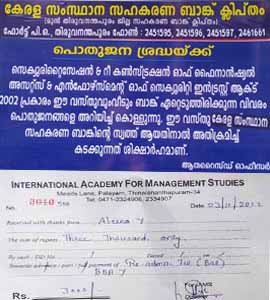 കേരള സംസ്ഥാന സഹകരണ ബാങ്ക് ക്ലിപ്തം
(മുൻ തിരുവനന്തപുരം ജില്ല സഹകരണ ബാങ്ക് ക്ലിപ്തം)
ഫോർട്ട് പി.ഒ., തിരുവനന്തപുരം, ഫോൺ: 2451595, 2451596, 2451597, 2461661
പൊതുജന ശ്രദ്ധയ്ക്ക്
സെക്യൂരിറ്റൈസേഷൻ & റീ കൺസ്ട്രക്ഷൻ ഓഫ് ഫൈനാൻഷ്യൽ
അസറ്റ്സ് & എൻഫോഴ്സ്മെന്റ് ഓഫ് സെക്യൂരിറ്റി ഇൻട്രസ്റ്റ് ആക്ട്
2002 പ്രകാരം ഈ വസ്തുവും/വീടും ബാങ്ക് ഏറ്റെടുത്തിരിക്കുന്ന വിവരം
പൊതുജനങ്ങളെ അറിയിച്ച് കൊള്ളുന്നു. ഈ വസ്തു കേരള സംസ്ഥാന
സഹകരണ ബാങ്കിന്റെ സ്വത്ത് ആയതിനാൽ അതിക്രമിച്ച്
കടക്കുന്നത് ശിക്ഷാർഹമാണ്.
ആതറൈസ്ഡ് ഓഫീസർ
INTERNATIONAL ACADEMY FOR MANAGEMENT STUDIES
Meads Lane, Palayam, Thiruvananthapuram-34
Tel: 0471-2324906, 2334907
No. 3010 Date
Received with thanks from
The sum of rupees Three Thousand only
By cash
Rs. 3000